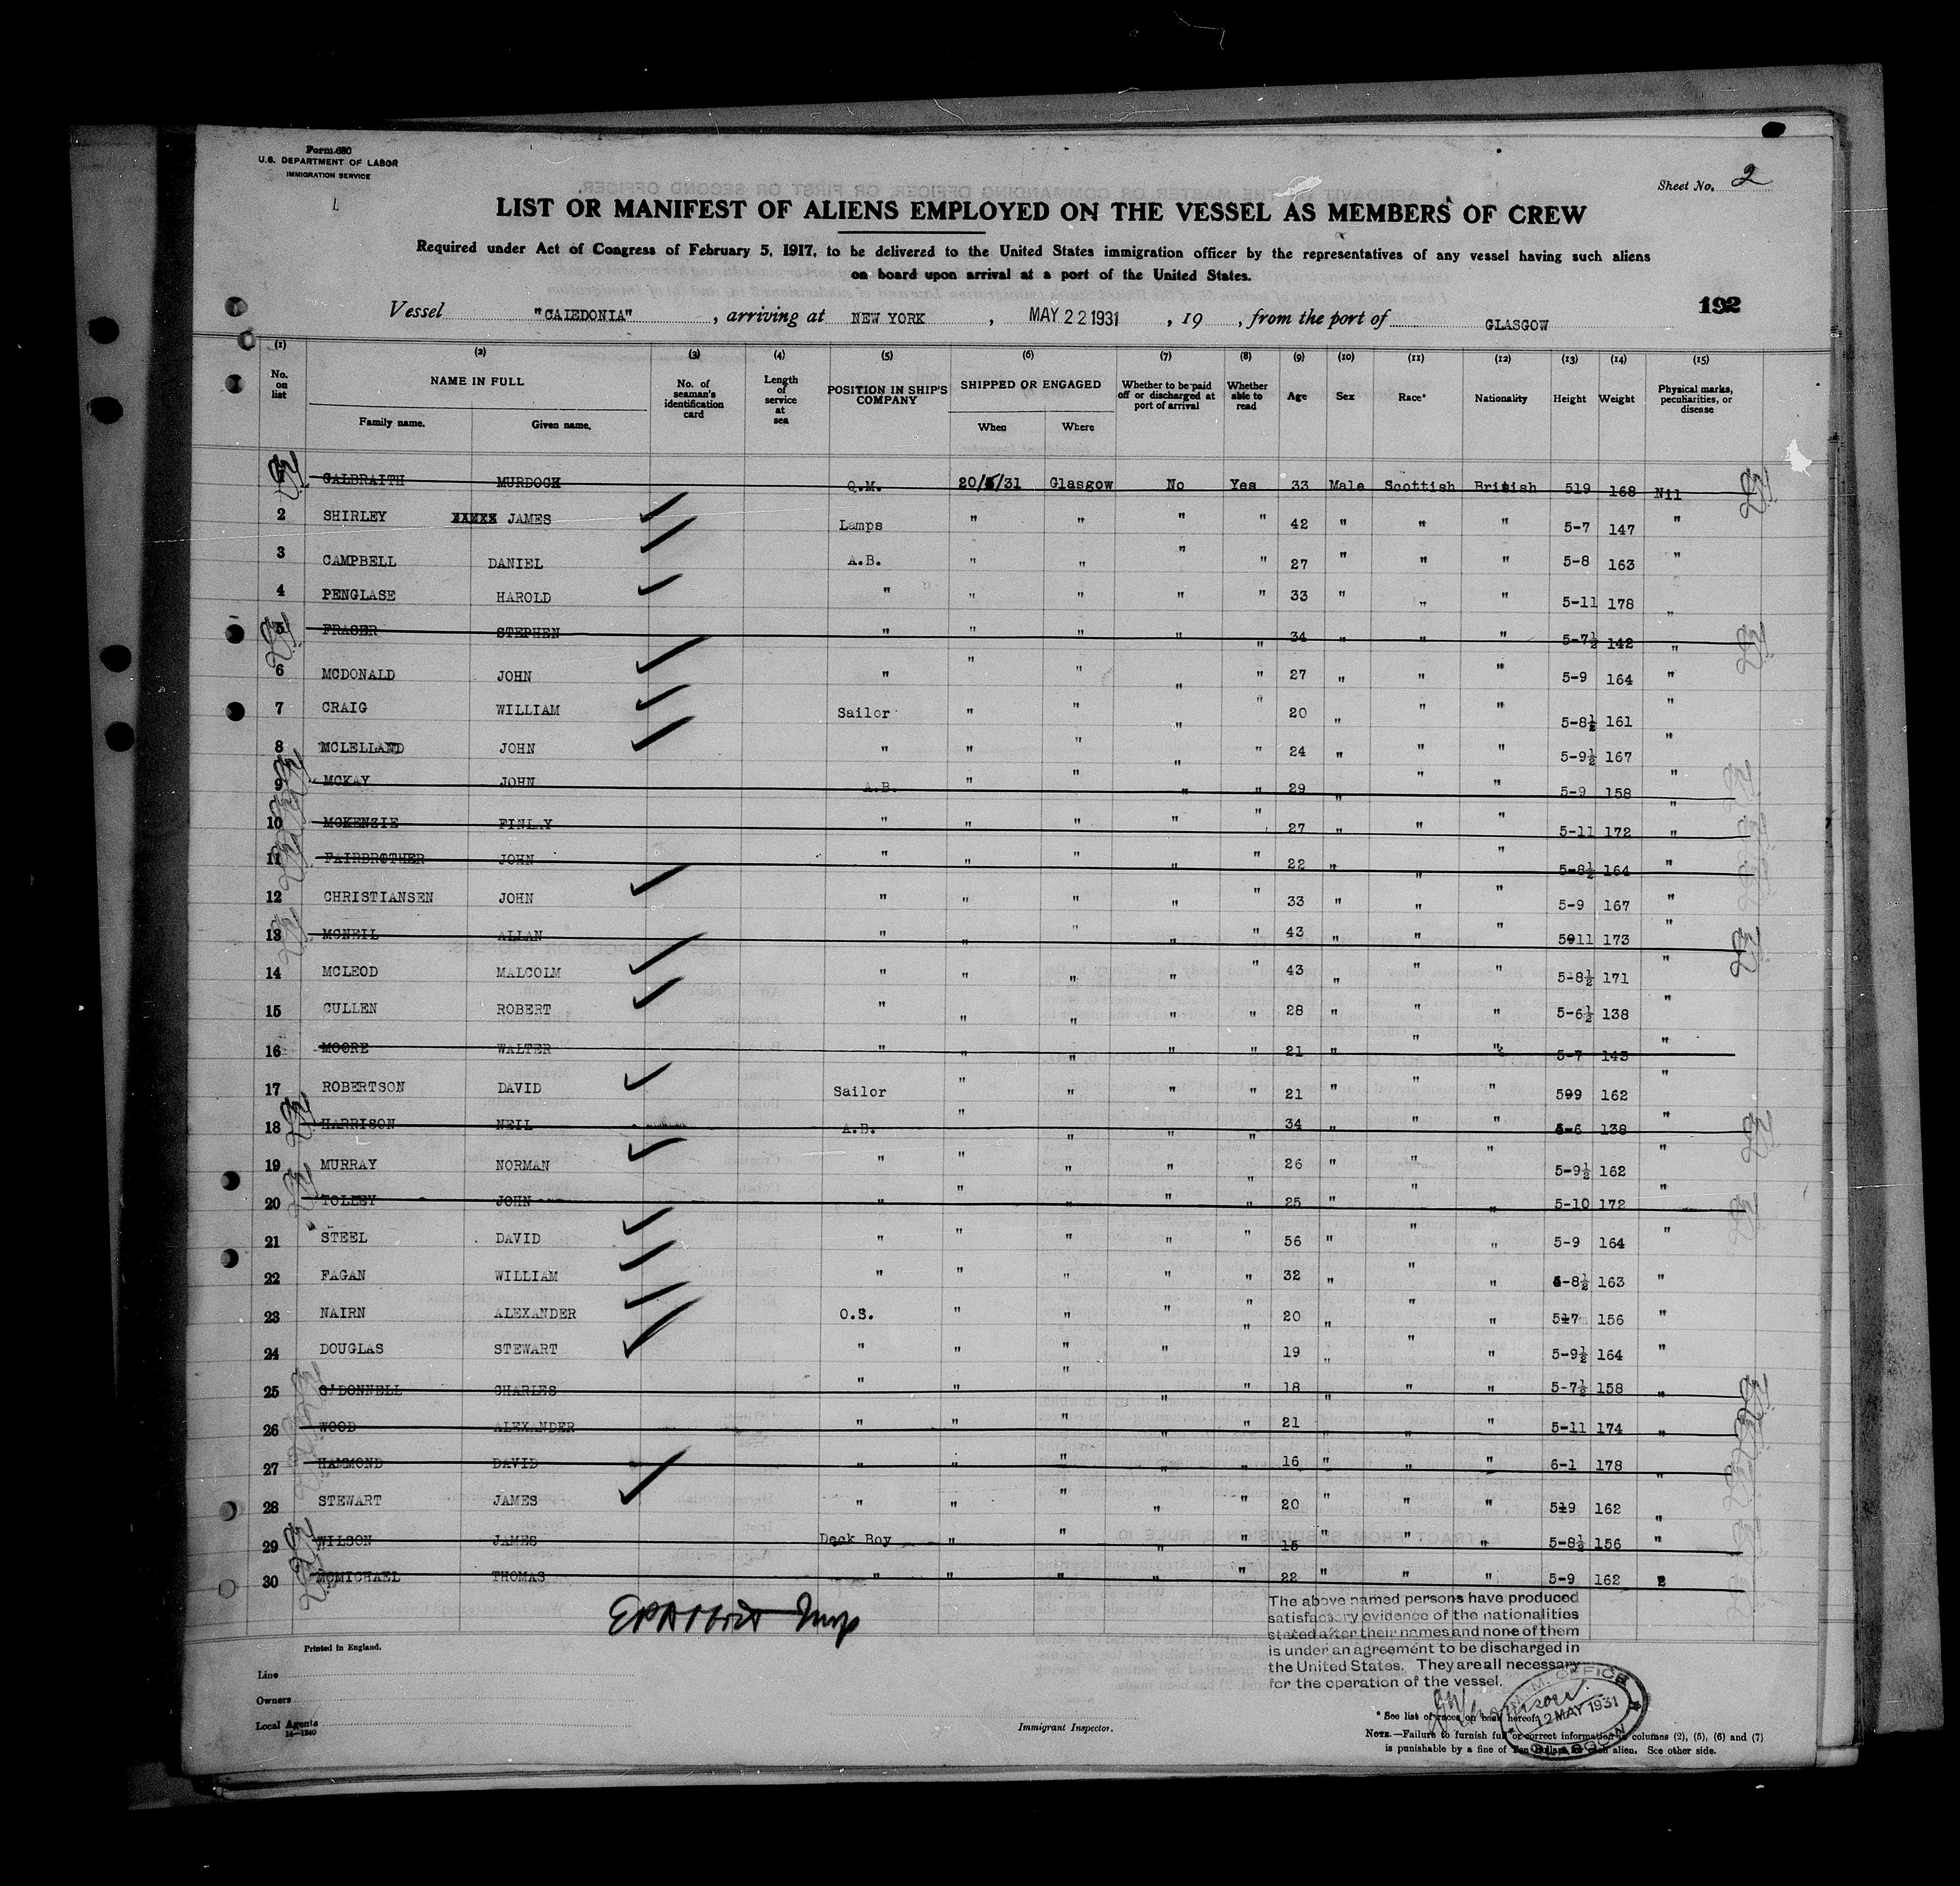 Form 680
U.S. DEPARTMENT OF LABOR
IMMIGRATION SERVICE
Sheet No. 2
LIST OR MANIFEST OF ALIENS EMPLOYED ON THE VESSEL AS MEMBERS OF CREW
Required under Act of Congress of February 5, 1917, to be delivered to the United States immigration officer by the representatives of any vessel having such aliens
on board upon arrival at a port of the United States.
192
Vessel "CALEDONIA", arriving at NEW YORK, MAY 22 1931, 19 , from the port of GLASGOW
(1) (2) (3) (4) (5) (6) (7) (8) (9) (10) (11) (12) (13) (14) (15)
No. on list NAME IN FULL Family name. Given name. No. of seaman's identification card Length of service at sea POSITION IN SHIP'S COMPANY SHIPPED OR ENGAGED When Where Whether to be paid off or discharged at port of arrival Whether able to read Age Sex Race* Nationality Height Weight Physical marks, peculiarities, or disease
1 GALBRAITH MURDOCH Q.M. 20/5/31 Glasgow No Yes 33 Male Scottish British 519 168 Nil
2 SHIRLEY JAMES Lamps " " " " 42 " " " 5-7 147 "
3 CAMPBELL DANIEL A.B. " " " " 27 " " " 5-8 163 "
4 PENGLASE HAROLD " " " " " 33 " " " 5-11 178 "
5 FRASER STEPHEN " " " " " 34 " " " 5-7½ 142 "
6 MCDONALD JOHN " " " " " 27 " " " 5-9 164 "
7 CRAIG WILLIAM Sailor " " " " 20 " " " 5-8½ 161 "
8 MCLELLAND JOHN " " " " " 24 " " " 5-9½ 167 "
9 MCKAY JOHN A.B. " " " " 29 " " " 5-9 158 "
10 MCKENZIE FINLAY " " " " " 27 " " " 5-11 172 "
11 FAIRBROTHER JOHN " " " " " 22 " " " 5-8½ 164 "
12 CHRISTIANSEN JOHN " " " " " 33 " " " 5-9 167 "
13 MCNEIL ALLAN " " " " " 43 " " " 5911 173 "
14 MCLEOD MALCOLM " " " " " 43 " " " 5-8½ 171 "
15 CULLEN ROBERT " " " " " 28 " " " 5-6½ 138 "
16 MOORE WALTER " " " " " 21 " " " 5-7 143 "
17 ROBERTSON DAVID Sailor " " " " 21 " " " 599 162 "
18 HARRISON NEIL A.B. " " " " 34 " " " 5-6 138 "
19 MURRAY NORMAN " " " " " 26 " " " 5-9½ 162 "
20 TOLLEY JOHN " " " " " 25 " " " 5-10 172 "
21 STEEL DAVID " " " " " 56 " " " 5-9 164 "
22 FAGAN WILLIAM " " " " " 32 " " " 5-8½ 163 "
23 NAIRN ALEXANDER O.S. " " " " 20 " " " 5-7 156 "
24 DOUGLAS STEWART " " " " " 19 " " " 5-9½ 164 "
25 O'DONNELL CHARLES " " " " " 18 " " " 5-7½ 158 "
26 WOOD ALEXANDER " " " " " 21 " " " 5-11 174 "
27 HAMMOND DAVID " " " " " 16 " " " 6-1 178 "
28 STEWART JAMES " " " " " 20 " " " 519 162 "
29 WILSON JAMES Deck Boy " " " " 15 " " " 5-8½ 156 "
30 MCMICHAEL THOMAS " " " " " 22 " " " 5-9 162
The above named persons have produced
satisfactory evidence of the nationalities
stated after their names and none of them
is under an agreement to be discharged in
the United States. They are all necessary
for the operation of the vessel.
Printed in England.
Line
Owners
Local Agents
14-1240
Immigrant Inspector.
M.M. OFFICE
12 MAY 1931
GLASGOW
* See list of races on back hereof.
NOTE.—Failure to furnish full or correct information in columns (2), (5), (6) and (7)
is punishable by a fine of Ten Dollars for each alien. See other side.